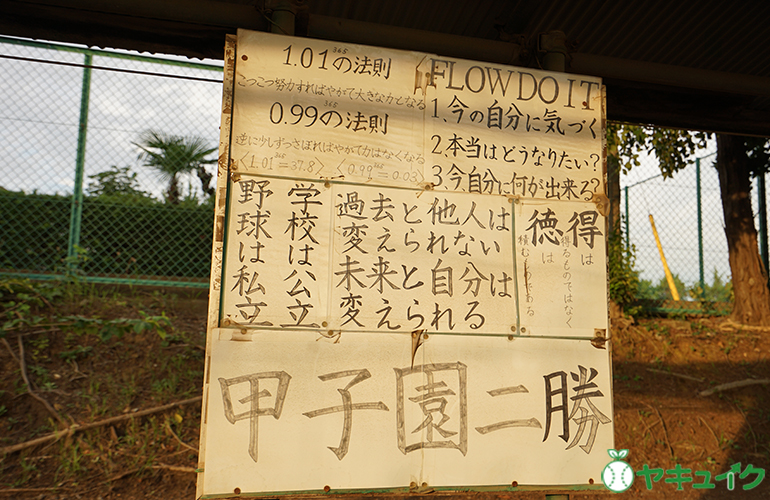 1.01³⁶⁵の法則
こつこつ努力すればやがて大きな力となる
0.99³⁶⁵の法則
逆に少しずつさぼればやがて力はなくなる
〈1.01³⁶⁵=37.8〉〈0.99³⁶⁵=0.03〉
FLOW DO IT
1、今の自分に気づく
2、本当はどうなりたい?
3、今自分に何が出来る?
学校は公立
野球は私立
過去と他人は
変えられない
未来と自分は
変えられる
得は
得るものではなく
徳は
積むものである
甲子園二勝
ヤキュイク